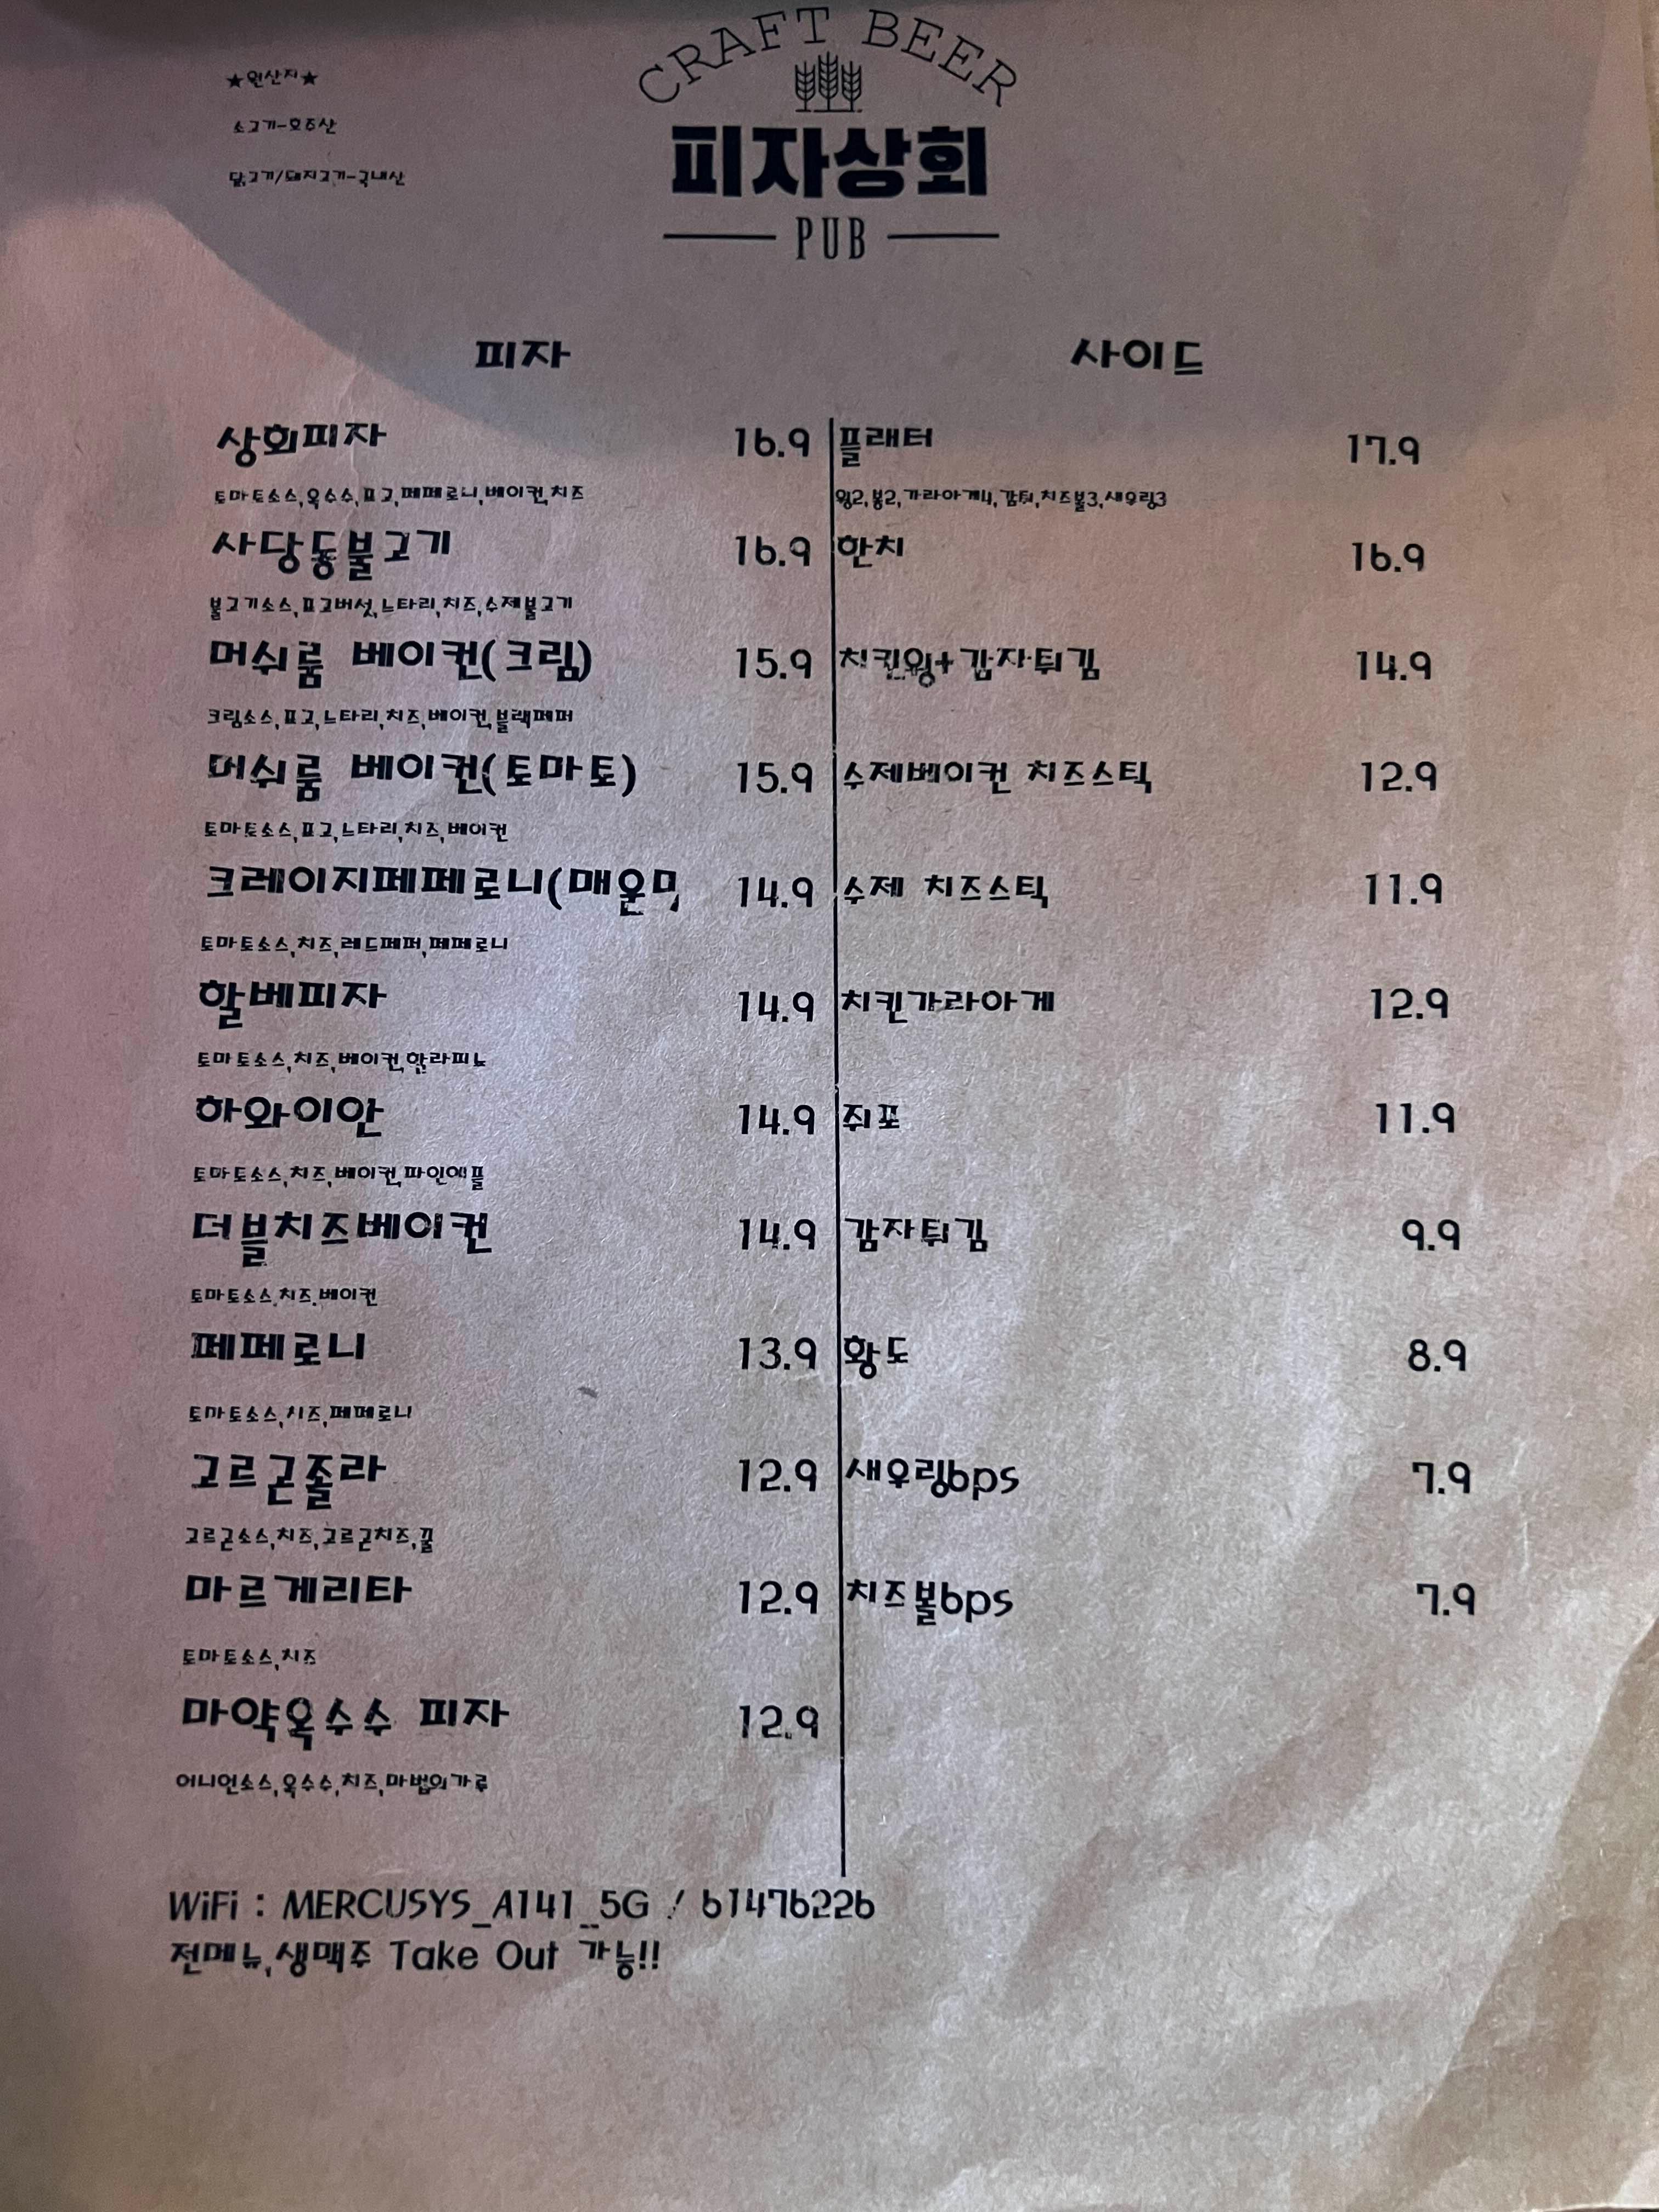 ★원산지★
소고기-호주산
닭고기/돼지고기-국내산
CRAFT BEER
피자상회
PUB
피자
상회피자 16.9
토마토소스,옥수수,표고,페페로니,베이컨,치즈
사당동불고기 16.9
불고기소스,표고버섯,느타리,치즈,수제불고기
머쉬룸 베이컨(크림) 15.9
크림소스,표고,느타리,치즈,베이컨,블랙페퍼
머쉬룸 베이컨(토마토) 15.9
토마토소스,표고,느타리,치즈,베이컨
크레이지페페로니(매운 14.9
토마토소스,치즈,레드페퍼,페페로니
할베피자 14.9
토마토소스,치즈,베이컨,할라피뇨
하와이안 14.9
토마토소스,치즈,베이컨,파인애플
더블치즈베이컨 14.9
토마토소스,치즈,베이컨
페페로니 13.9
토마토소스,치즈,페페로니
고르곤졸라 12.9
고르곤소스,치즈,고르곤치즈,꿀
마르게리타 12.9
토마토소스,치즈
마약옥수수 피자 12.9
어니언소스,옥수수,치즈,마법의가루
사이드
플래터 17.9
윙2,봉2,가라아게4,감튀,치즈볼3,새우링3
한치 16.9
치킨윙+감자튀김 14.9
수제베이컨 치즈스틱 12.9
수제 치즈스틱 11.9
치킨가라아게 12.9
쥐포 11.9
감자튀김 9.9
황도 8.9
새우링6ps 7.9
치즈볼6ps 7.9
WiFi : MERCUSYS_A141_5G / 61476226
전메뉴,생맥주 Take Out 가능!!